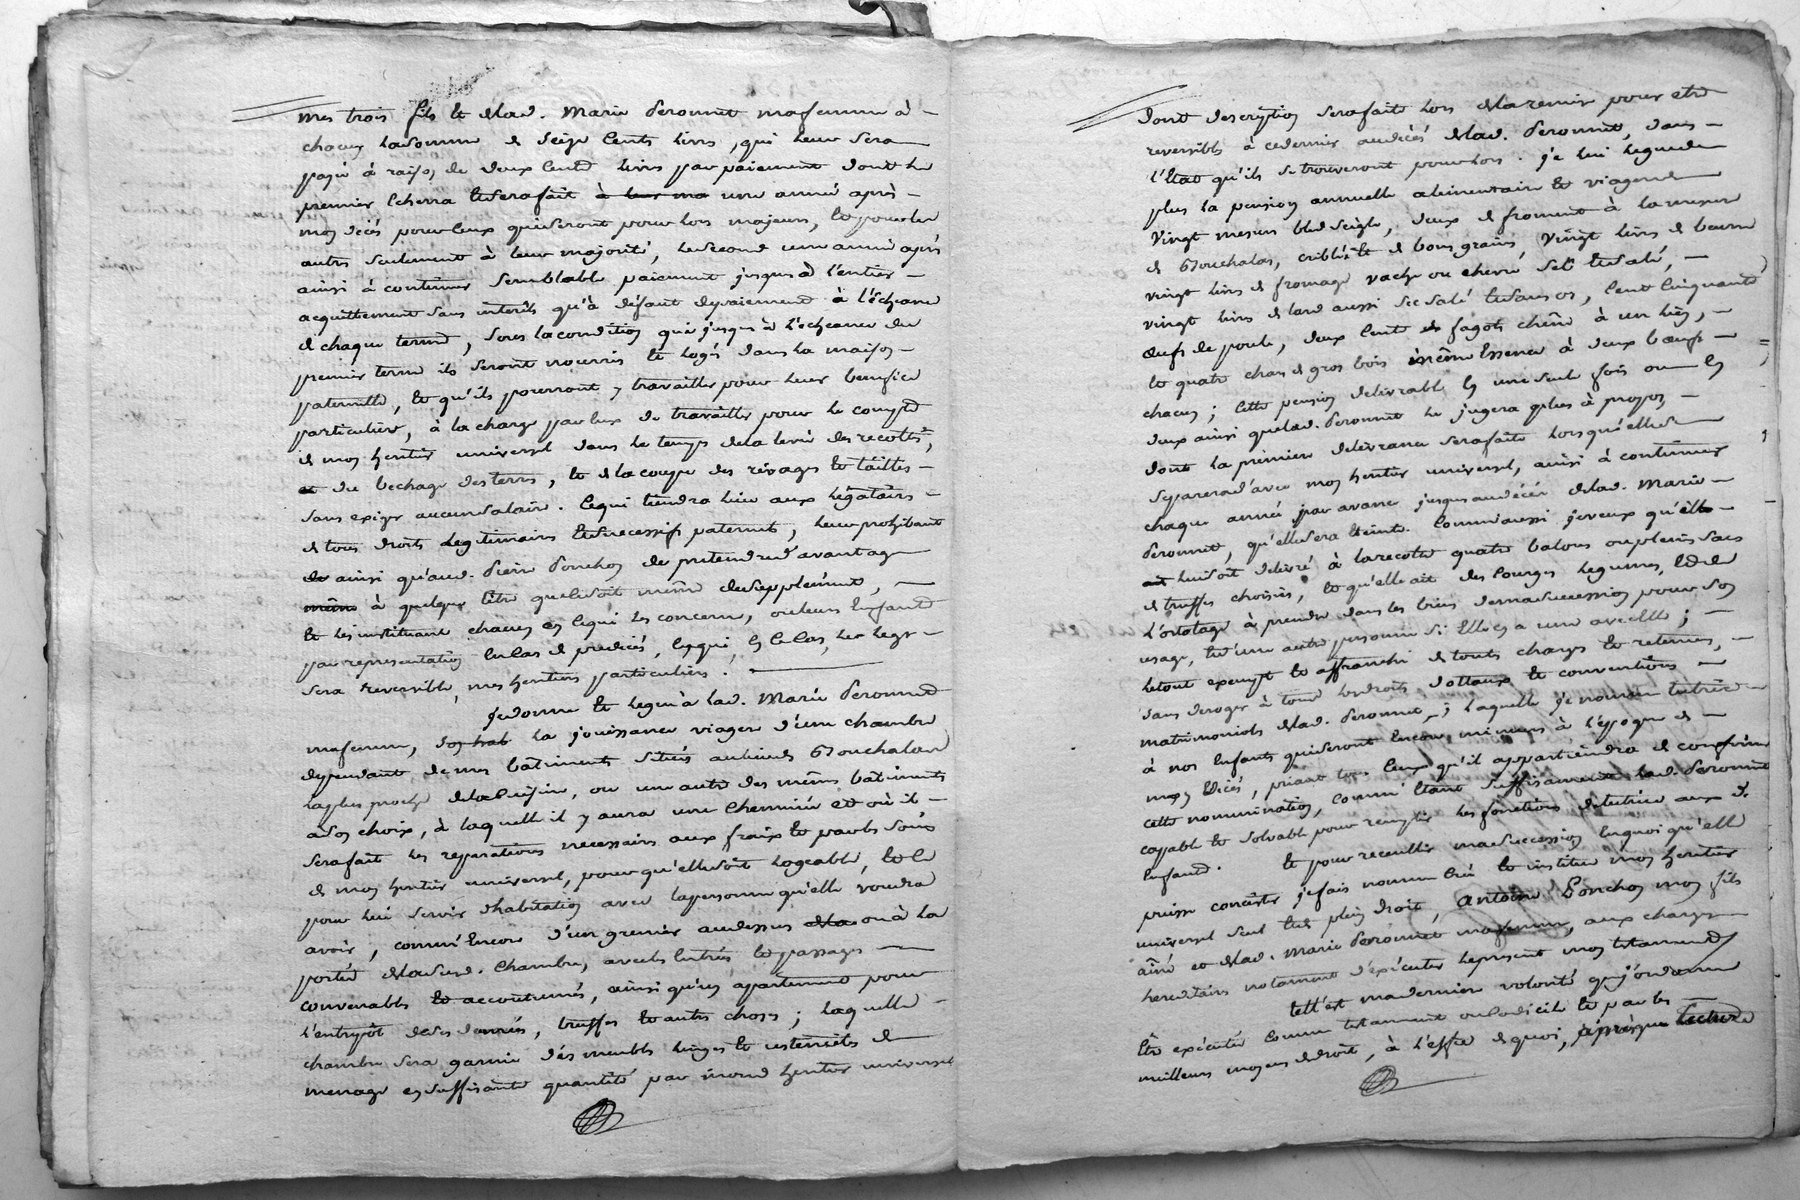 mes trois fils et de lad. Marie Peronnet ma femme à
chacun la somme de seize cents livres, qui leur sera
payée à raison de deux cents livres par paiement dont le
premier echerra et se fait à leur ma une année après
mon décés pour ceux qui seront pour lors majeurs, et pour les
autres seulement à leur majorité, le second une année après
ainsi à continuer semblable paiement jusques à l'entier
acquittement sans interêts qu'à défaut de paiement à l'échéance
de chaque terme, sous la condition que jusques à l'echeance du
premier terme ils seront nourris et logés dans la maison
paternelle, et qu'ils pourront y travailler pour leur benefice
particulier, à la charge par eux de travailler pour le compte
de mon heritier universel dans le temps de la levée des recoltes,
et du bechage des terres, et de la coupe des rivages et tailles
sans exiger aucun salaire. Ce qui tiendra lieu aux légataires
de tous droits legitimaires et successifs paternels, leur prohibant
de ainsi qu'aud. Pierre Ponchon de pretendre d'avantage
même à quelque titre que ce soit même de supplement,
et les instituant chacun en ce qui les concerne, ou leurs enfants
par representation en cas de predécés, ce qui, en ce cas, les legs
sera reversible, mes heritiers particuliers.
Je donne et legue à lad. Marie Peronnet
ma femme, son hab la jouissance viagere d'une chambre
dependante de mes bâtiments situés au lieu de Bouchalas
la plus proche de la cuisine, ou une autre des mêmes bâtiments
à son choix, à laquelle il y aura une cheminée et où il
sera fait les reparations necessaires aux fraix et par les soins
de mon heritier universel, pour qu'elle soit logeable, et ce
pour lui servir d'habitation avec la personne qu'elle voudra
avoir, comm'encore d'un grenier au dessus de la ou à la
portée de lad. chambre, avec les entrées et passages
convenables et accoutumés, ainsi qu'un apartement pour
l'entrepôt de ses denrées, truffes et autres choses; laquelle
chambre sera garnie des meubles linges et ustensiles de
menage en suffisante quantité par mond. heritier universel
dont description sera faite lors de la remise pour etre
reversibles à ce dernier au décés de lad. Peronnet, dans
l'etat qu'ils se trouveront pour lors. je lui legue de
plus la pension annuelle alimentaire et viagere de
vingt mesures bled seigle, deux de froment à la mesure
de Bouchalas, criblé et de bons grains, vingt livres de beurre
vingt livres de fromage vache ou chevre sec et salé,
vingt livres de lard aussi sec salé et sans os, cent cinquante
œufs de poule, deux cent de fagots chêne à un lien,
et quatre chars de gros bois même essence à deux bœufs
chacun; cette pension delivrable en une seule fois ou en
deux ainsi que lad. Peronnet le jugera plus à propos,
dont la premiere delivrance sera faite lorsqu'elle se
separera d'avec mon heritier universel, ainsi à continuer
chaque année par avance jusques au décés de lad. Marie
Peronnet, qu'elle sera eteinte. Comme aussi je veux qu'elle
ait lui soit delivré à la recolte quatre balons ou pleins sacs
de truffes choisies, et qu'elle ait des courges legumes, et de
l'ortolage à prendre dans les biens de ma succession pour son
usage, et d'une autre personne si elle en a une avec elle;
le tout exempt et affranchi de toutes charges et retenues,
sans deroger à tous les droits dottaux et conventions
matrimoniales de lad. Peronnet, laquelle je nomme tutrice
à nos enfants qui seront encore mineurs à l'epoque de
mon décés, priant tous ceux qu'il appartiendra de confirmer
cette nommination, comm'etant suffisamment lad. Peronnet
capable et solvable pour remplir les fonctions de tutrice aux d.
enfants. Et pour recueillir ma succession en quoi qu'elle
puisse consister je fais nomme créé et institue mon heritier
universel seul et de plein droit, Antoine Ponchon mon fils
ainé et de lad. Marie Peronnet ma femme, aux charges
hereditaires notament d'exécuter le present mon testament
tell'est ma derniere volonté que j'ordonne
être exécutée comme testament ou codicile et par les
meilleurs moyens de droit, à l'effet de quoi, après que lecture